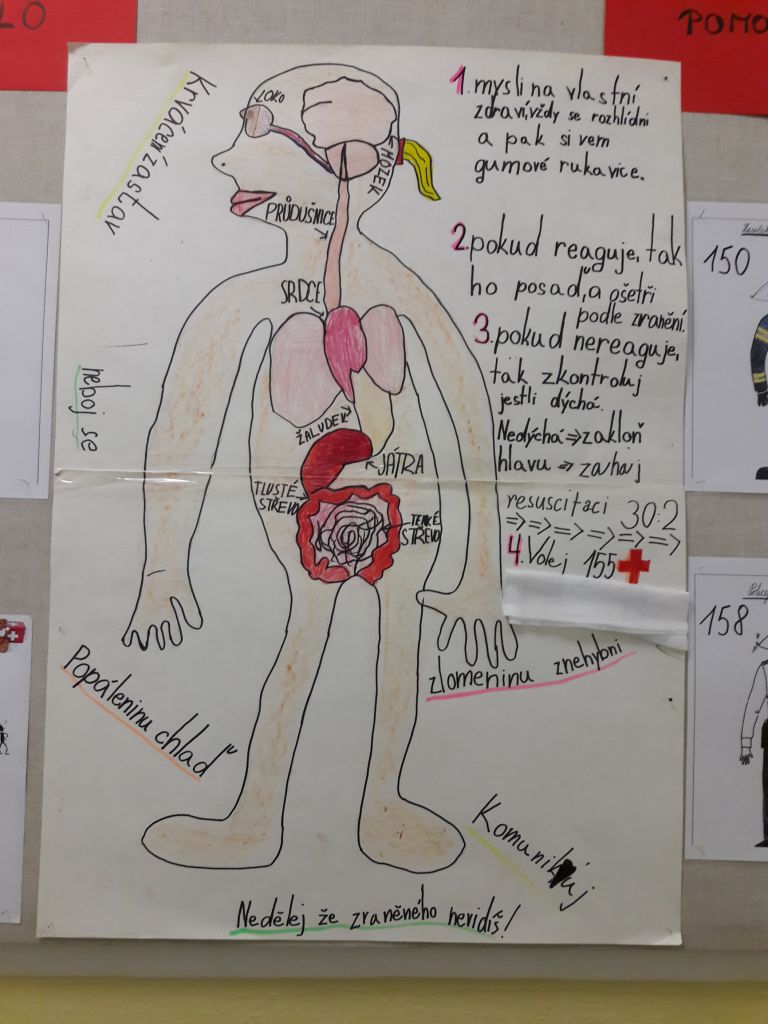 LO
POMO
Krvácení zastav
OKO
MOZEK
PRŮDUŠNICE
SRDCE
ŽALUDEK
JÁTRA
TLUSTÉ
STŘEVO
TENKÉ
STŘEVO
1. mysli na vlastní
zdraví, vždy se rozhlídni
a pak si vem
gumové rukavice.
2. pokud reaguje, tak
ho posaď, a ošetři
podle zranění.
3. pokud nereaguje,
tak zkontroluj
jestli dýchá.
Nedýchá ⇒ zakloň
hlavu ⇒ zahaj
resuscitaci 30:2
⇒⇒⇒⇒⇒⇒
4. Volej 155
neboj se
Popáleninu chlaď
zlomeninu znehybni
Komunikuj
Nedělej že zraněného nevidíš!
150
158